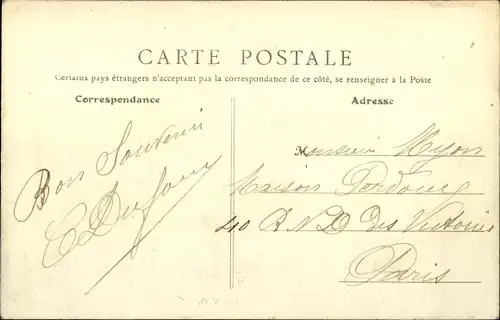 CARTE POSTALE
Certains pays étrangers n'acceptant pas la correspondance de ce côté, se renseigner à la Poste
Correspondance
Adresse
Bon Souvenir
E Dufour
Monsieur Hyon
Maison
40 R N D des Victoires
Paris